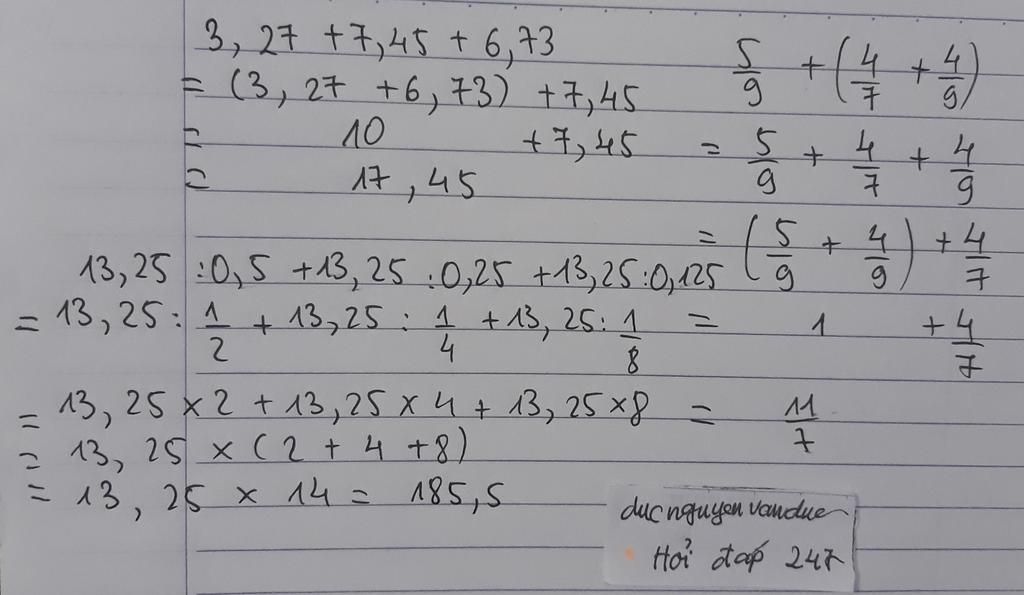 3,27 + 7,45 + 6,73
= (3,27 + 6,73) + 7,45
= 10 + 7,45
= 17,45
5/9 + (4/7 + 4/9)
= 5/9 + 4/7 + 4/9
= (5/9 + 4/9) + 4/7
= 1 + 4/7
= 11/7
13,25 : 0,5 + 13,25 : 0,25 + 13,25 : 0,125
= 13,25 : 1/2 + 13,25 : 1/4 + 13,25 : 1/8
= 13,25 × 2 + 13,25 × 4 + 13,25 × 8
= 13,25 × (2 + 4 + 8)
= 13,25 × 14 = 185,5
ducnguyenvanduc
Hỏi đáp 247